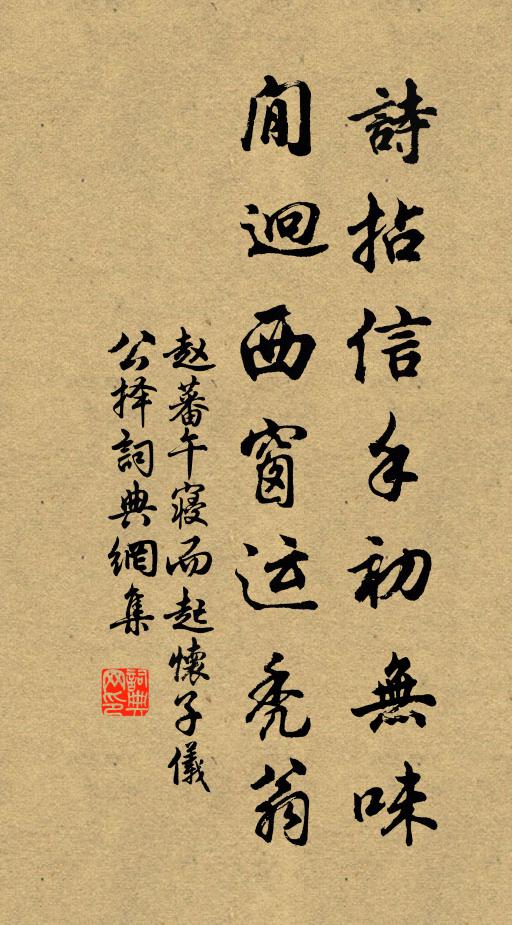 詩拈信手初無味
閒迴西窗运秃翁
赵蕃午寝而起懷子儀
公择詞典網集
詞典
网印